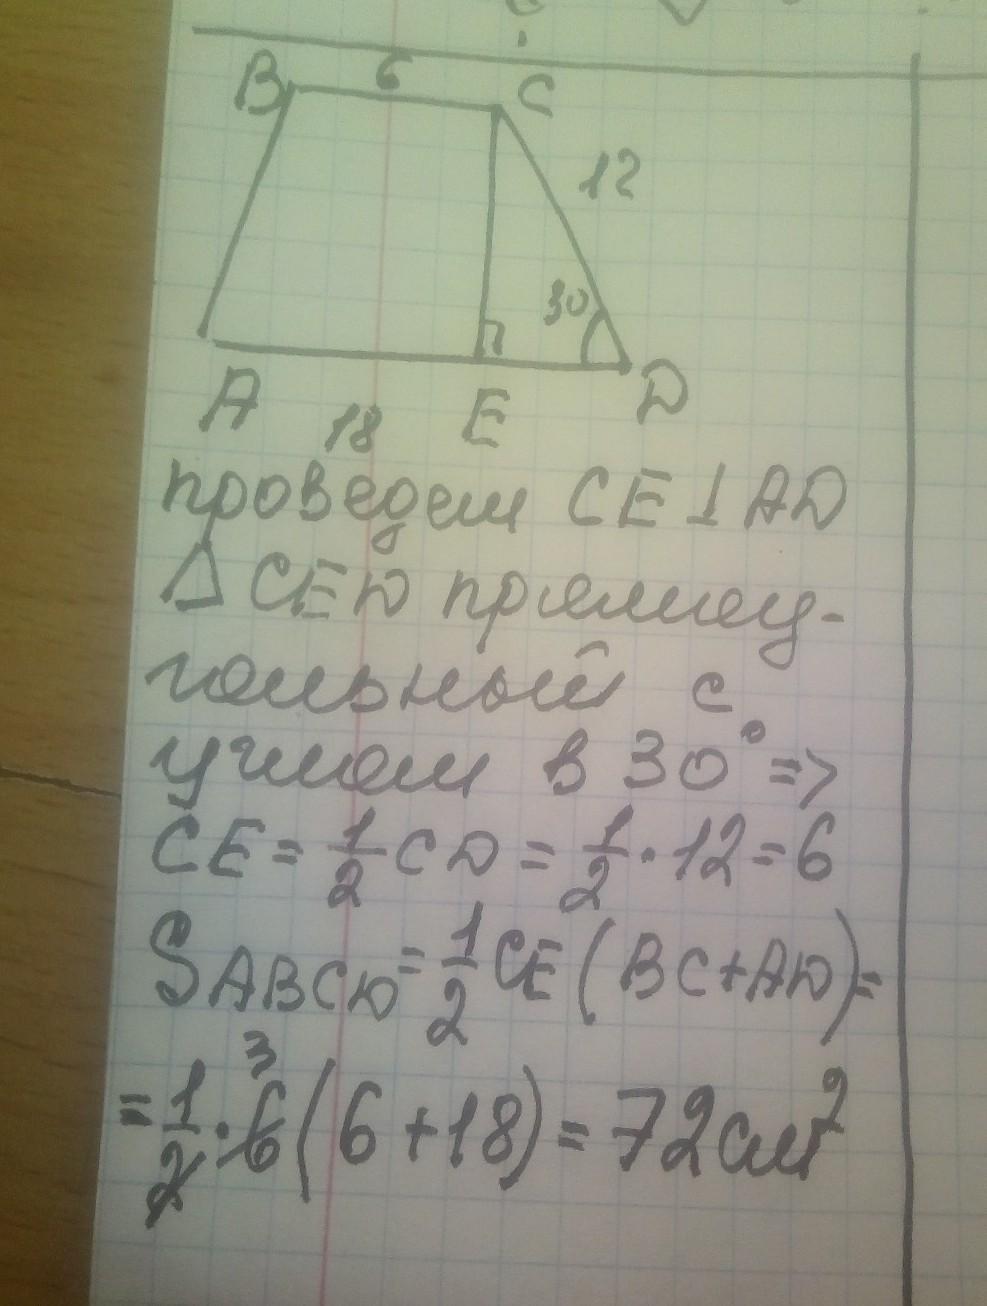 B 6 C
12
30
A 18 E D
проведем CE⊥AD
Δ CED прямоу-
гольный с
углом в 30° =>
CE = 1/2 CD = 1/2 · 12 = 6
SABCD = 1/2 CE (BC+AD) =
3
= 1/2 · 6 (6+18) = 72 см²